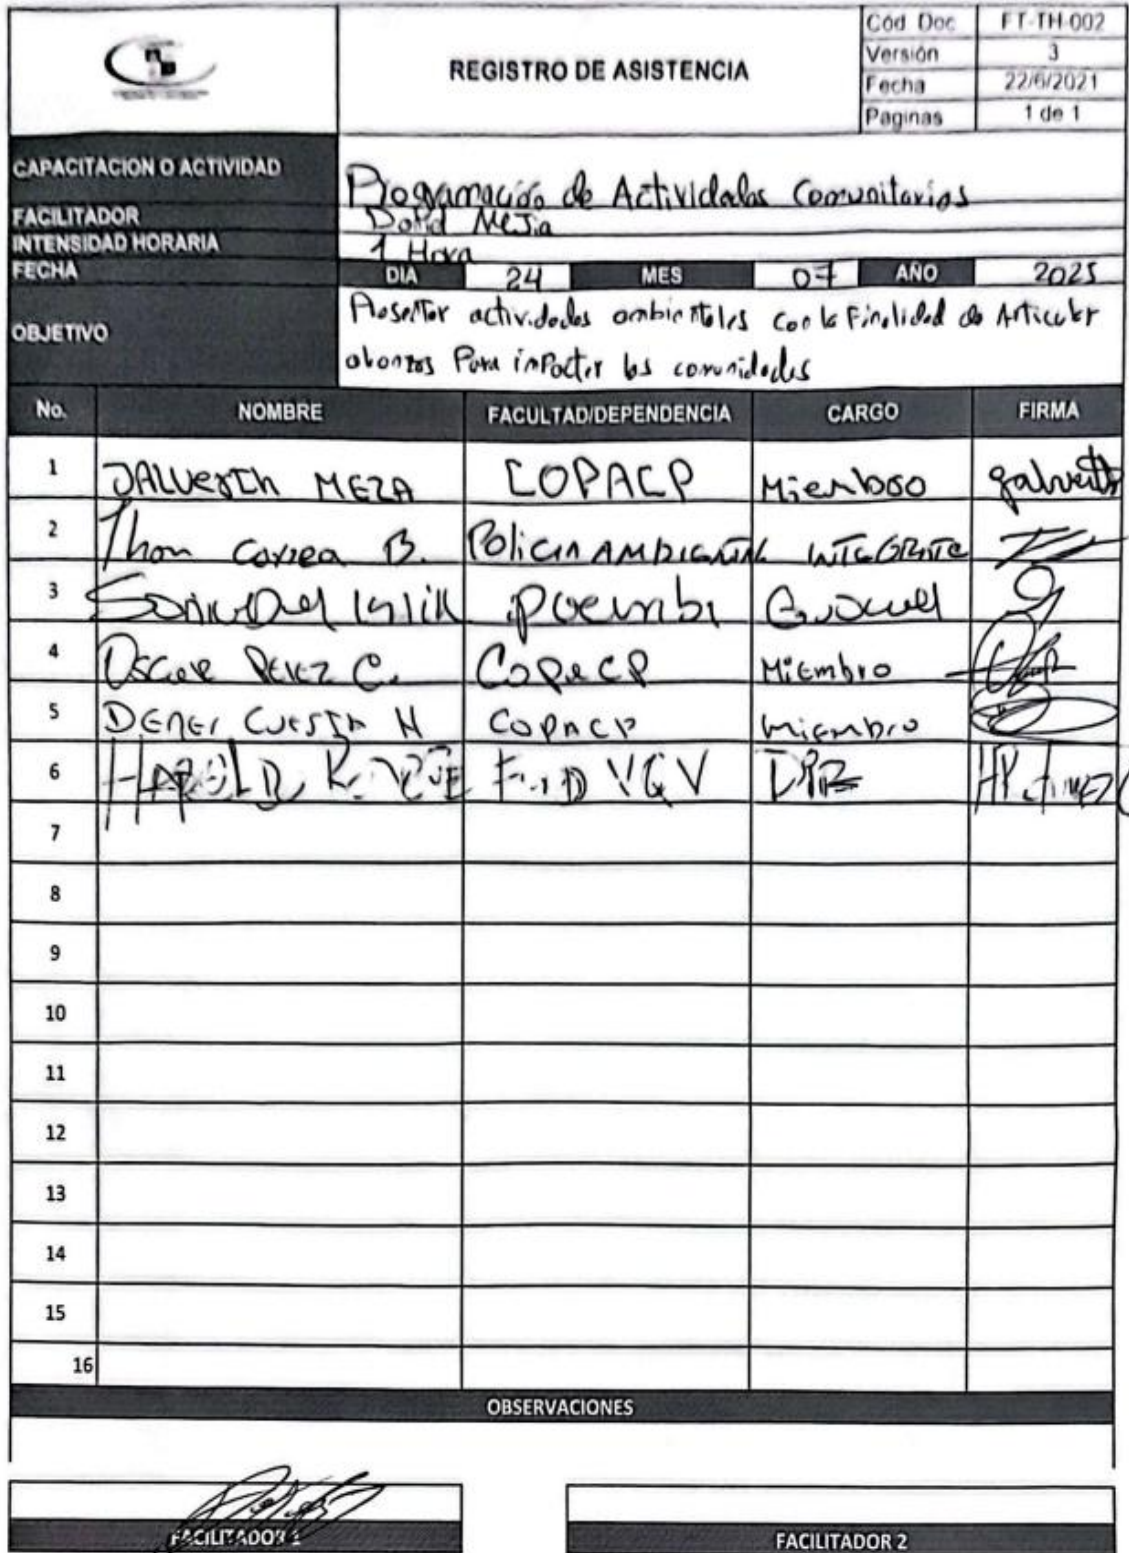 REGISTRO DE ASISTENCIA
Cód Doc FT-TH-002
Versión 3
Fecha 22/6/2021
Paginas 1 de 1
CAPACITACION O ACTIVIDAD Programación de Actividades Comunitarias
FACILITADOR David Mejia
INTENSIDAD HORARIA 1 Hora
FECHA DIA 24 MES 07 AÑO 2025
OBJETIVO
actividades ambientales con la Finalidad de Articular
Para impactar las comunidades
No. NOMBRE FACULTAD/DEPENDENCIA CARGO FIRMA
1 JALVerth MEZA COPACP Miembro Jalverth
2 Jhon Correa B. Policia AMBIENTAL INTEGRANTE
3
4 Oscar Perez C. CopaCP Miembro
5 DENEI CUESTA N COPACP Miembro
6 HAROLD
7
8
9
10
11
12
13
14
15
16
OBSERVACIONES
FACILITADOR 1 FACILITADOR 2